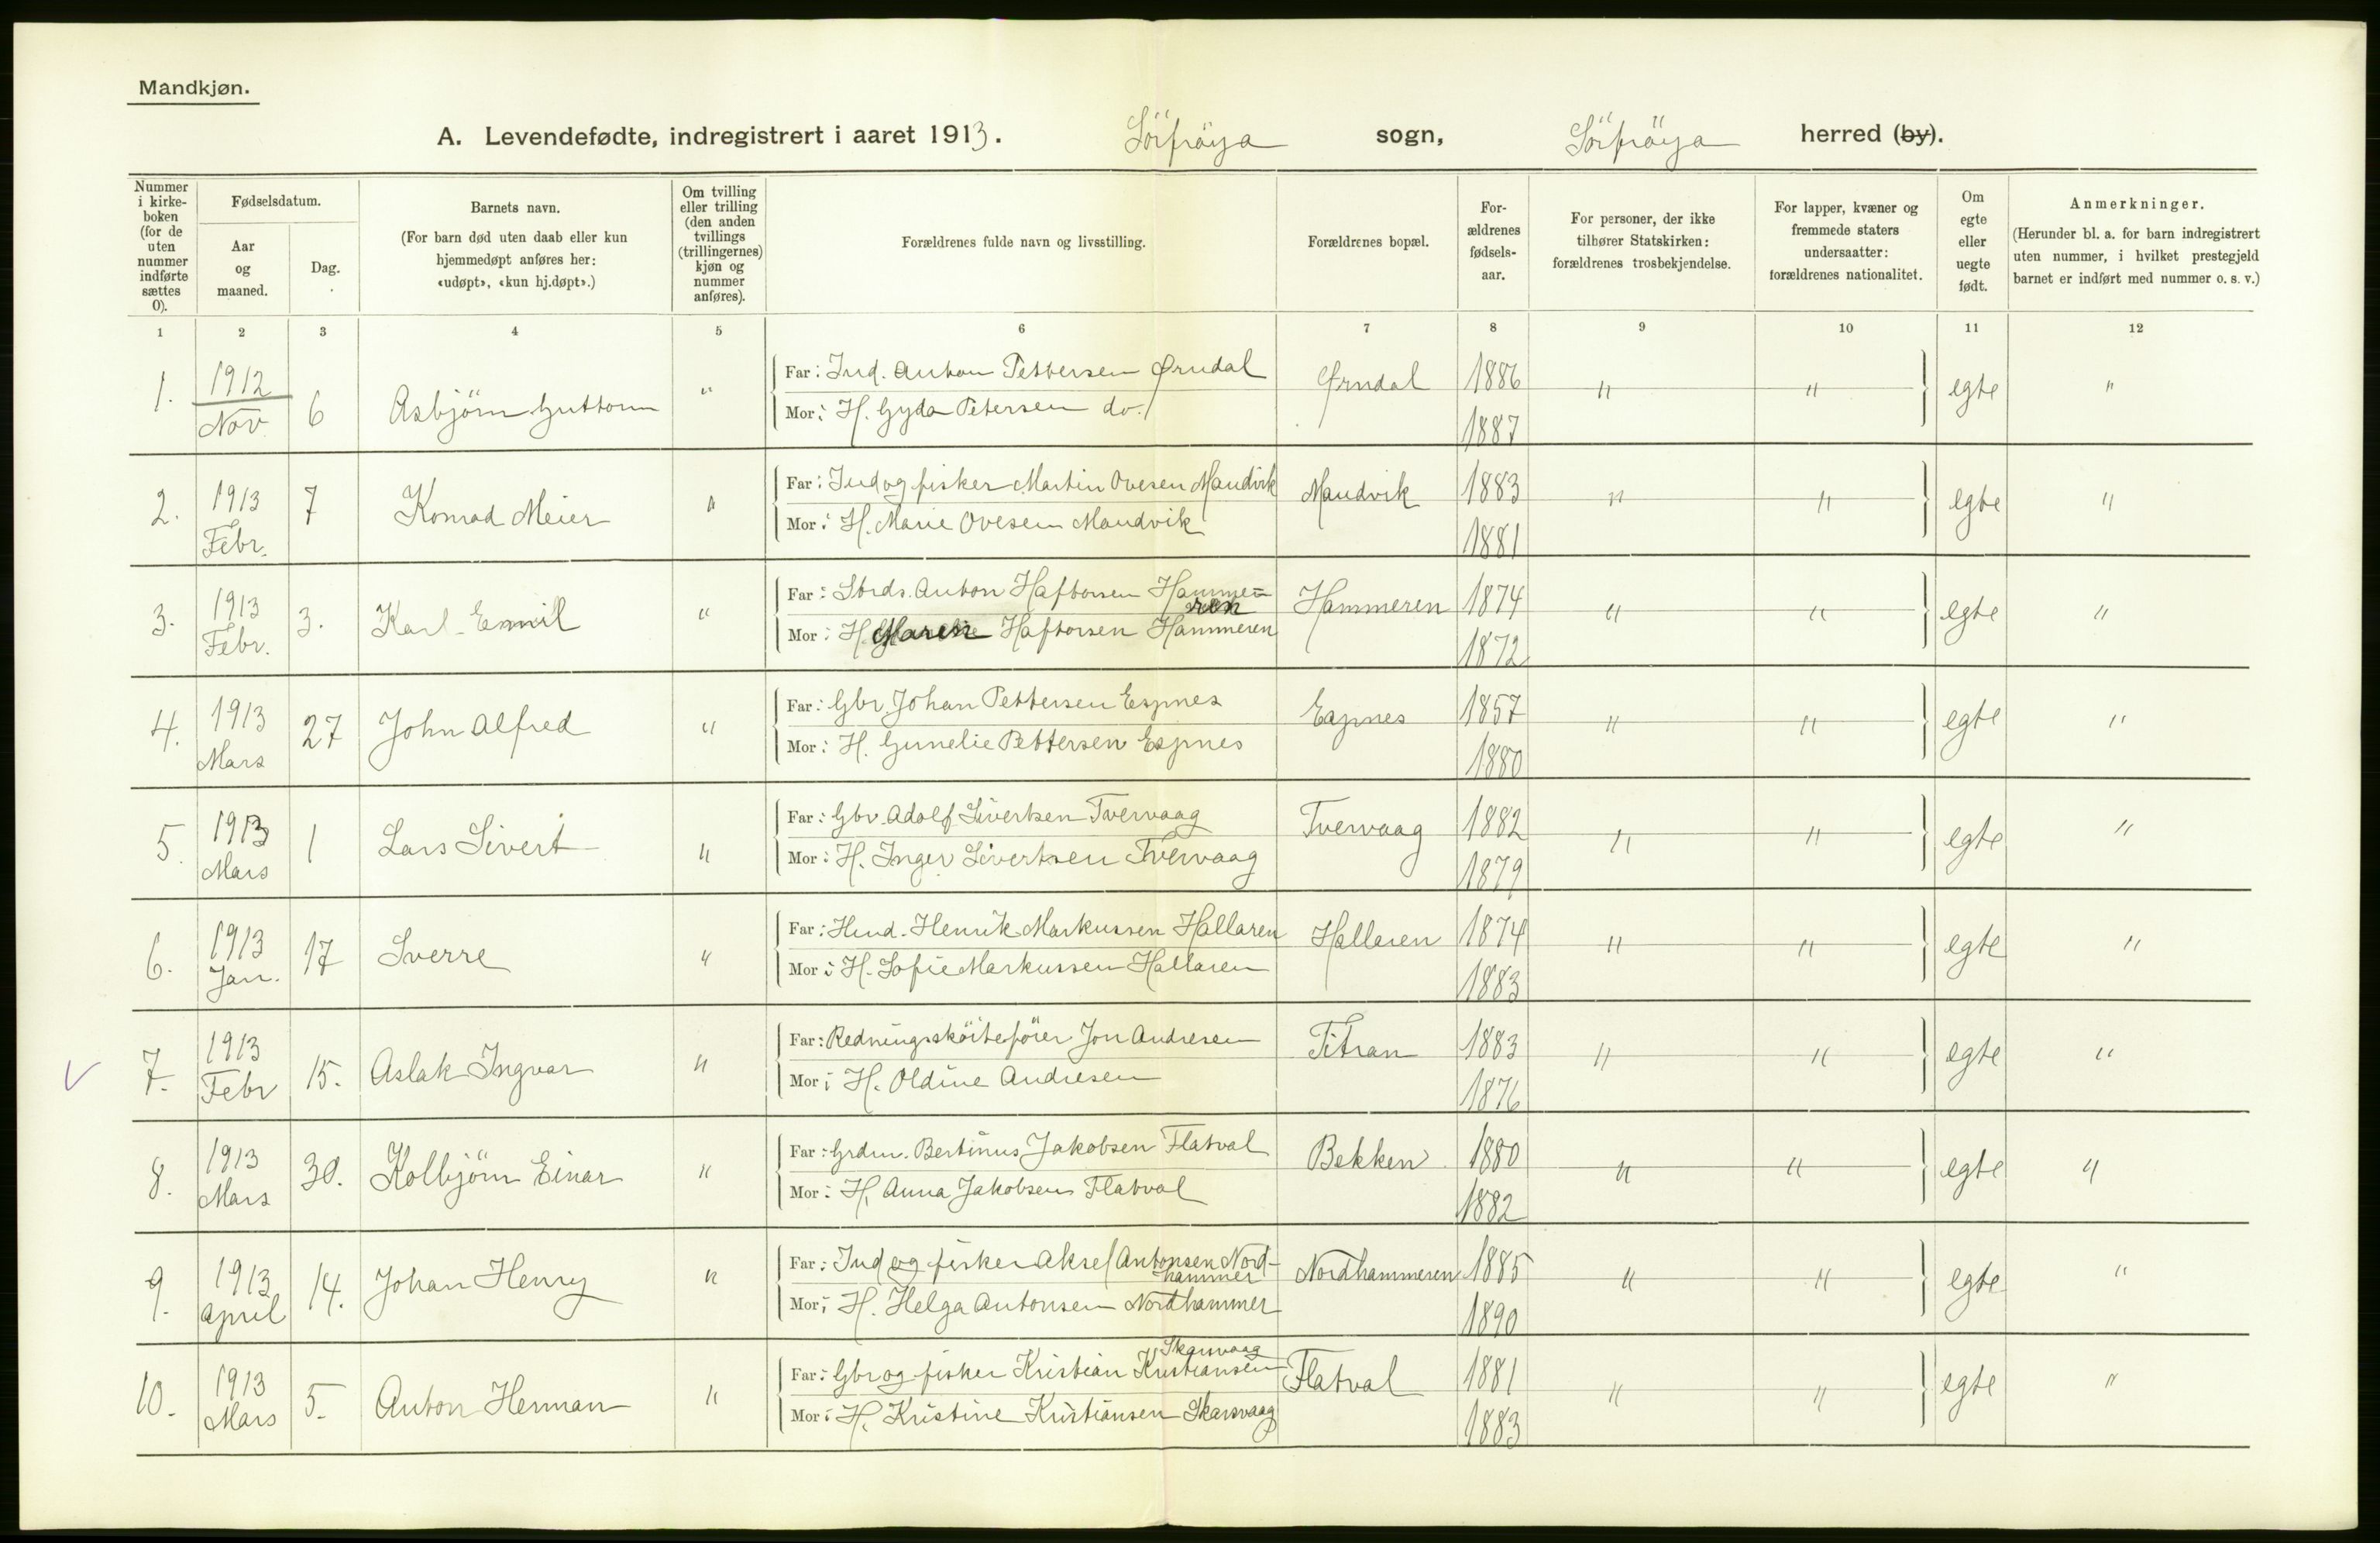 Mandkjøn.
A. Levendefødte, indregistrert i aaret 1913. Sörfröya sogn, Sörfröya herred (by).
Nummer i kirkeboken (for de uten nummer indførte sættes 0).
Fødselsdatum.
Aar og maaned.
Dag.
Barnets navn.
(For barn død uten daab eller kun hjemmedøpt anføres her: «udøpt», «kun hj.døpt».)
Om tvilling eller trilling (den anden tvillings (trillingernes) kjøn og nummer anføres).
Forældrenes fulde navn og livsstilling.
Forældrenes bopæl.
Forældrenes fødselsaar.
For personer, der ikke tilhører Statskirken: forældrenes trosbekjendelse.
For lapper, kvæner og fremmede staters undersaatter: forældrenes nationalitet.
Om egte eller uegte født.
Anmerkninger.
(Herunder bl. a. for barn indregistrert uten nummer, i hvilket prestegjeld barnet er indført med nummer o. s. v.)
1 2 3 4 5 6 7 8 9 10 11 12
1. 1912 Nov 6 Asbjörn Guttorm " Far: Ind. Anton Pettersen Ørndal Ørndal 1886 " " egte "
Mor: H. Gyda Petersen do. 1887
2. 1913 Febr. 7 Konrad Meier " Far: Ind og fisker Martin Ovesen Maudvik Maudvik 1883 " " egte "
Mor: H. Marie Ovesen Maudvik 1881
3. 1913 Febr. 3. Karl Emil " Far: Strds. Anton Haftorsen Hammeren Hammeren 1874 " " egte "
Mor: H. Maren Haftorsen Hammeren 1872
4. 1913 Mars 27 John Alfred " Far: Gbr. Johan Pettersen Espnes Espnes 1857 " " egte "
Mor: H. Gunelie Pettersen Espnes 1880
5. 1913 Mars 1 Lars Sivert " Far: Gbr. Adolf Sivertsen Tvervaag Tvervaag 1882 " " egte "
Mor: H. Inger Sivertsen Tvervaag 1879
6. 1913 Jan. 17 Sverre " Far: Hmd. Henrik Markussen Hallaren Hallaren 1874 " " egte "
Mor: H. Sofie Markussen Hallaren 1883
7. 1913 Febr 15. Aslak Ingvar " Far: Redningsköiteförer Jon Andresen Titran 1883 " " egte "
Mor: H. Oldine Andresen 1876
8. 1913 Mars 30. Kolbjörn Einar " Far: Grdm. Bertinus Jakobsen Flatval Bekken 1880 " " egte "
Mor: H. Anna Jakobsen Flatval 1882
9. 1913 April 14. Johan Henry " Far: Ind og fisker Aksel Antonsen Nordhammer Nordhammeren 1885 " " egte "
Mor: H. Helga Antonsen Nordhammer 1890
10. 1913 Mars 5. Anton Herman " Far: Gbr og fisker Kristian Kristiansen Skarsvaag Flatval 1881 " " egte "
Mor: H. Kristine Kristiansen Skarsvaag 1883